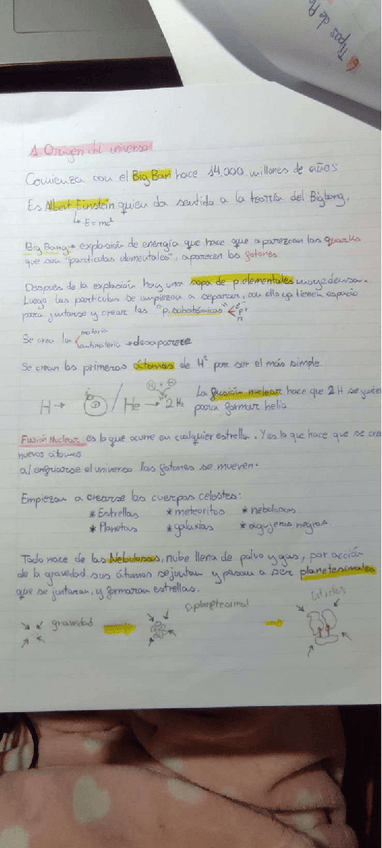 6. Tipos de
1. Origen del universo
Comienza con el Big Ban hace 14.000 millones de años
Es Albert Einstein quien da sentido a la teoría del Bigbang.
↳ E=mc²
Big Bang → explosión de energía que hace que aparezcan los quarks
que son "partículas elementales", aparecen los fotones
Después de la explosión hay una sopa de p. elementales muy densa.
Luego las partículas se empiezan a separar, con ello ya tienen espacio
para juntarse y crear las "p. subatómicas"
Se crea la
materia
antimateria → desaparece
Se crean los primeros átomos de H² por ser el más simple
H → / He → 2 H₂
La fusión nuclear hace que 2 H se junten
para formar helio.
Fusión Nuclear es lo que ocurre en cualquier estrella. Y es lo que hace que se crea
nuevos átomos
al enfriarse el universo los fotones se mueven.
Empiezan a crearse los cuerpos celestes:
* Estrellas * meteoritos * nebulosas
* Planetas * galaxias * agujeros negros
Todo nace de las Nebulosas, nube llena de polvo y gas, por acción
de la gravedad sus átomos se juntan y pasan a ser planetesimales
que se juntaran, y formaran estrellas.
gravedad